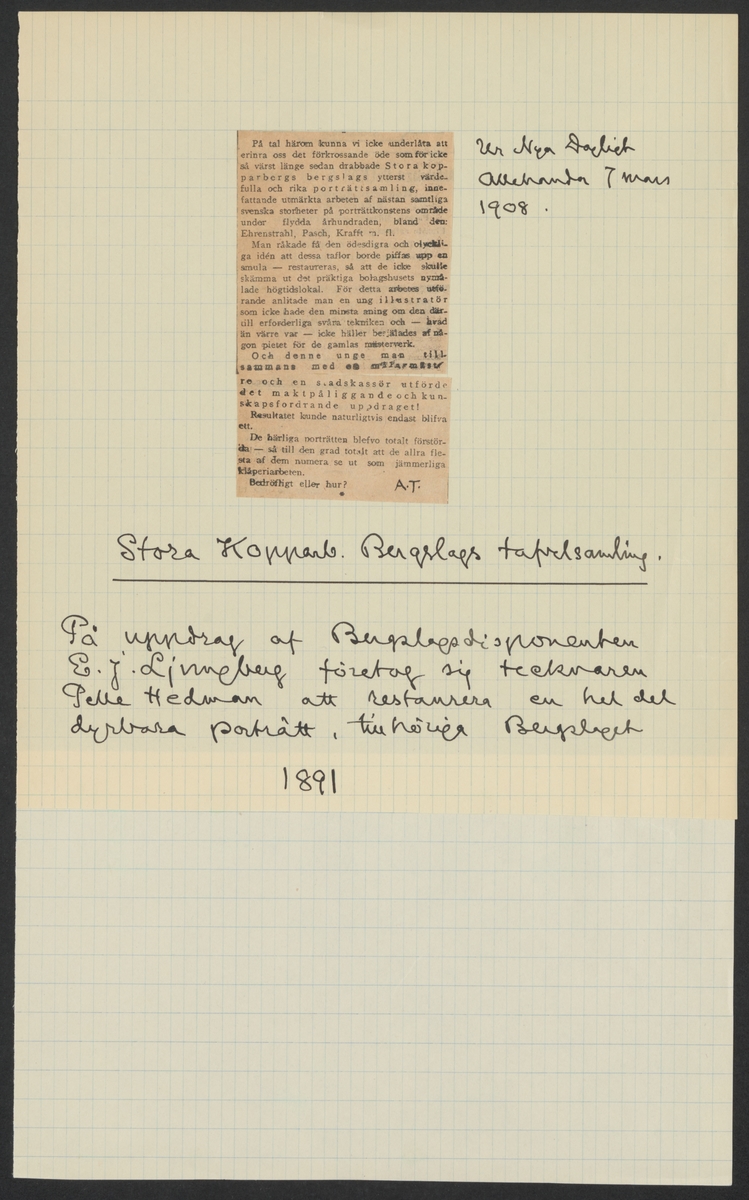 På tal härom kunna vi icke underlåta att
erinra oss det förkrossande öde som för icke
så värst länge sedan drabbade Stora kop-
parbergs bergslags ytterst värde-
fulla och rika porträttsamling, inne-
fattande utmärkta arbeten af nästan samtliga
svenska storheter på porträttkonstens område
under flydda århundraden, bland dem:
Ehrenstrahl, Pasch, Krafft m. fl.
Man råkade få den ödesdigra och olyckli-
ga idén att dessa taflor borde piffas upp en
smula — restaureras, så att de icke skulle
skämma ut det präktiga bolagshusets nymå-
lade högtidslokal. För detta arbetes utfö-
rande anlitade man en ung illustratör
som icke hade den minsta aning om den där-
till erforderliga svåra tekniken och — hvad
än värre var — icke häller besjälades af nå-
gon pietet för de gamlas mästerverk.
Och denne unge man till-
sammans med en
re och en stadskassör utförde
det maktpåliggande och kun-
skapsfordrande uppdraget!
Resultatet kunde naturligtvis endast blifva
ett.
De härliga porträtten blefvo totalt förstör-
da — så till den grad totalt att de allra fle-
sta af dem numera se ut som jämmerliga
klåperiarbeten.
Bedröfligt eller hur? A.T.
Ur Nya Dagligt
Allehanda 7 mars
1908.
Stora Kopparb. Bergslags tafvelsamling.
På uppdrag af Bergslagsdisponenten
E. J. Ljungberg företog sig tecknaren
Pelle Hedman att restaurera en hel del
dyrbara porträtt, tillhöriga Bergslaget
1891